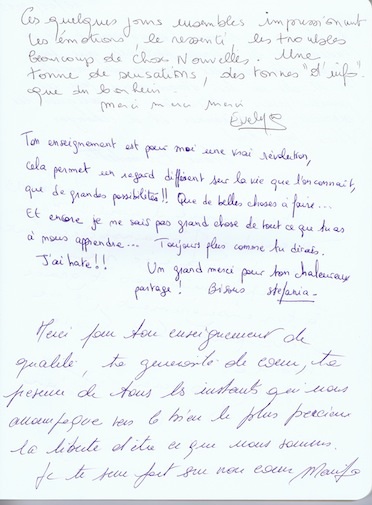 Ces quelques jours ensembles impressionnant
les émotions, le ressenti, les troubles
Beaucoup de choses Nouvelles. Une
tonne de sensations, des tonnes "d'info".
que du bonheur.
merci merci merci
Evelyne
Ton enseignement est pour moi une vrai révolution,
Cela permet un regard différent sur la vie que l'on connait,
que de grandes possibilités!! Que de belles choses à faire...
Et encore je ne sais pas grand chose de tout ce que tu as
à nous apprendre... Toujours plus comme tu dirais.
J'ai hate!! Un grand merci pour ton chaleureux
partage! Bisous stefania.
Merci pour ton enseignement de
qualité, ta generosité de coeur, ta
presence de tous les instants qui nous
accompagne vers le bien le plus precieux
la liberté d'être ce que nous sommes.
Je te serre fort sur mon coeur